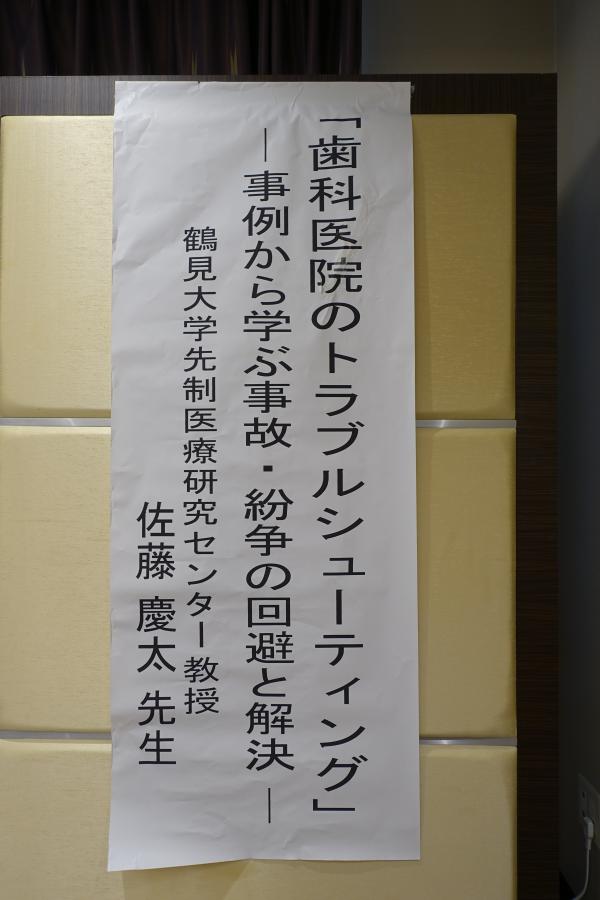 「歯科医院のトラブルシューティング」
―事例から学ぶ事故・紛争の回避と解決―
鶴見大学先制医療研究センター教授
佐藤 慶太 先生